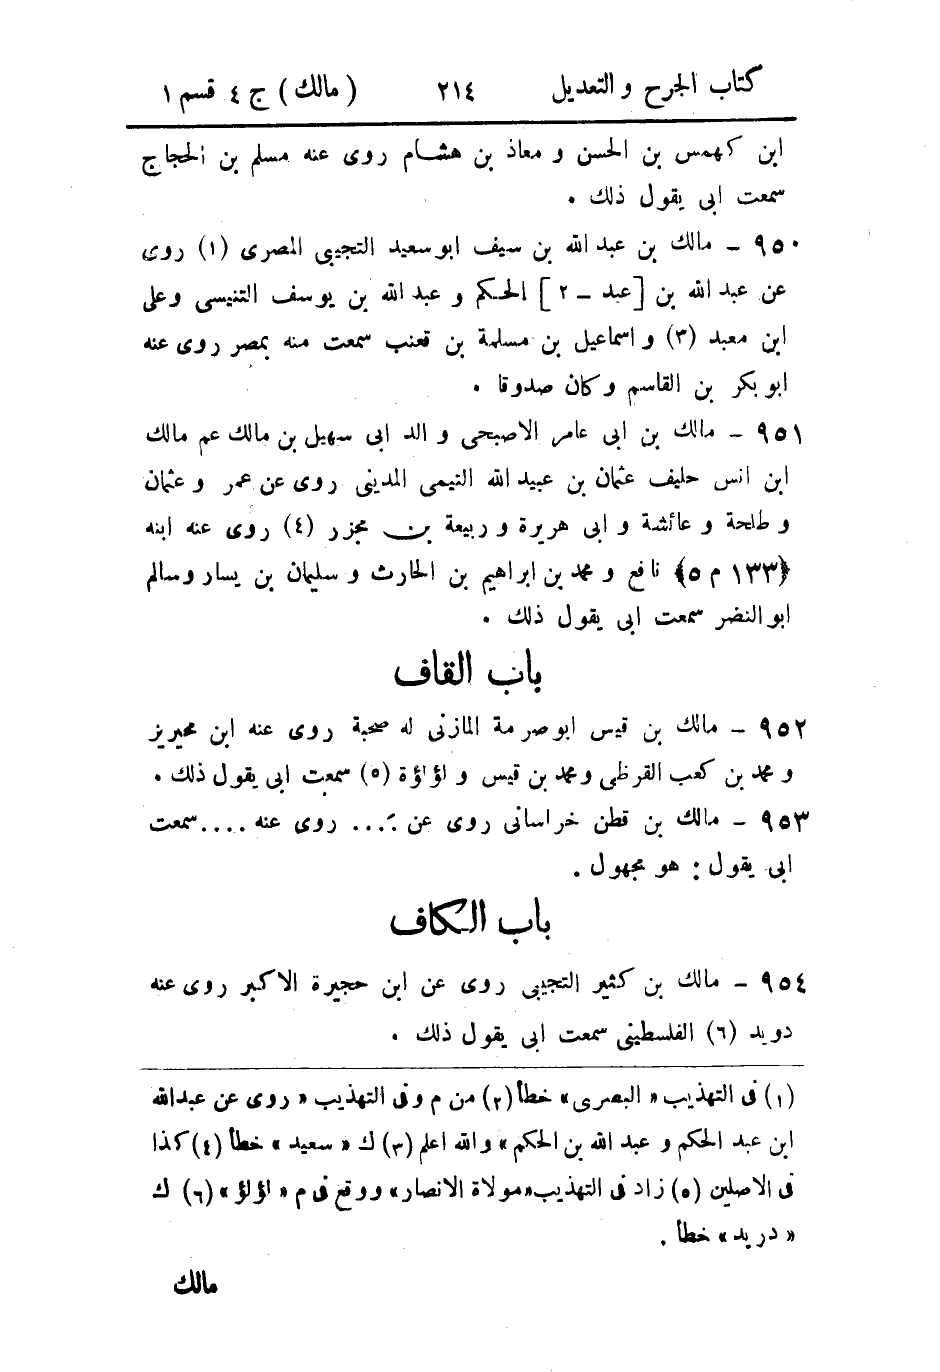 كتاب الجرح والتعديل ٢١٤ ( مالك ) ج ٤ قسم ١
ابن كهمس بن الحسن و معاذ بن هشام روى عنه مسلم بن الحجاج
سمعت ابى يقول ذلك .
٩٥٠ - مالك بن عبد الله بن سيف ابو سعيد التجيبى المصرى (١) روى
عن عبد الله بن [عبد - ٢] الحكم و عبد الله بن يوسف التنيسى وعلى
ابن معبد (٣) و اسماعيل بن مسلمة بن قعنب سمعت منه بمصر روى عنه
ابو بكر بن القاسم وكان صدوقا .
٩٥١ - مالك بن ابى عامر الاصبحى و الد ابى سهيل بن مالك عم مالك
ابن انس حليف عثمان بن عبيد الله التيمى المدينى روى عن عمر و عثمان
و طلحة و عائشة و ابى هريرة و ربيعة بن محزر (٤) روى عنه ابنه
﴿١٣٣ م ٥﴾ نافع و محمد بن ابراهيم بن الحارث و سليمان بن يسار وسالم
ابو النضر سمعت ابى يقول ذلك .
باب القاف
٩٥٢ - مالك بن قيس ابو صرمة المازنى له صحبة روى عنه ابن محيريز
و محمد بن كعب القرظى ومحمد بن قيس و لؤلؤة (٥) سمعت ابى يقول ذلك .
٩٥٣ - مالك بن قطن خراسانى روى عن .... روى عنه .... سمعت
ابى يقول : هو مجهول .
باب الكاف
٩٥٤ - مالك بن كثير التجيبى روى عن ابن حجيرة الاكبر روى عنه
دويد (٦) الفلسطينى سمعت ابى يقول ذلك .
(١) فى التهذيب « البصرى » خطأ (٢) من م وفى التهذيب « روى عن عبدالله
ابن عبد الحكم و عبد الله بن الحكم » والله اعلم (٣) ك « سعيد » خطأ (٤) كذا
فى الاصلين (٥) زاد فى التهذيب «مولاة الانصار» ووقع فى م « لؤلؤ » (٦) ك
« دريد » خطأ .
مالك